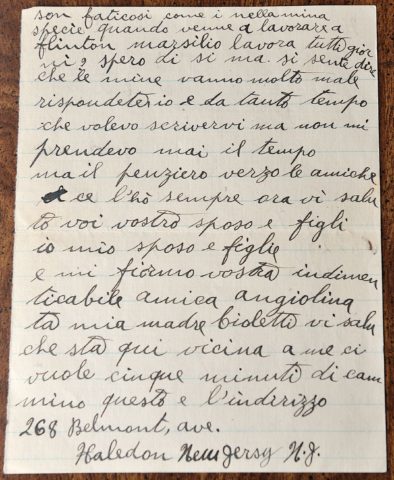 son faticosi come i nella mina
specie quando venne a lavorare a
flinton marsilio lavora tutti gior
ni, spero di si ma. si sente dire
che te mine vanno molto male
rispondeterio e da tanto tempo
che volevo scrivervi ma non mi
prendevo mai il tempo
ma il penziero verzo le amiche
ce l'hò sempre ora vi salu
to voi vostrò sposo e figli
io mio sposo e figlie
e mi fiormo vostra indimen
ticabile amica angiolina
ta mia madre bioletta vi salu
che sta qui vicina a me ci
vuole cinque minuti di cam
mino questo e l'inderizzo
268 Belmont, ave.
Haledon New Jersy N.J.